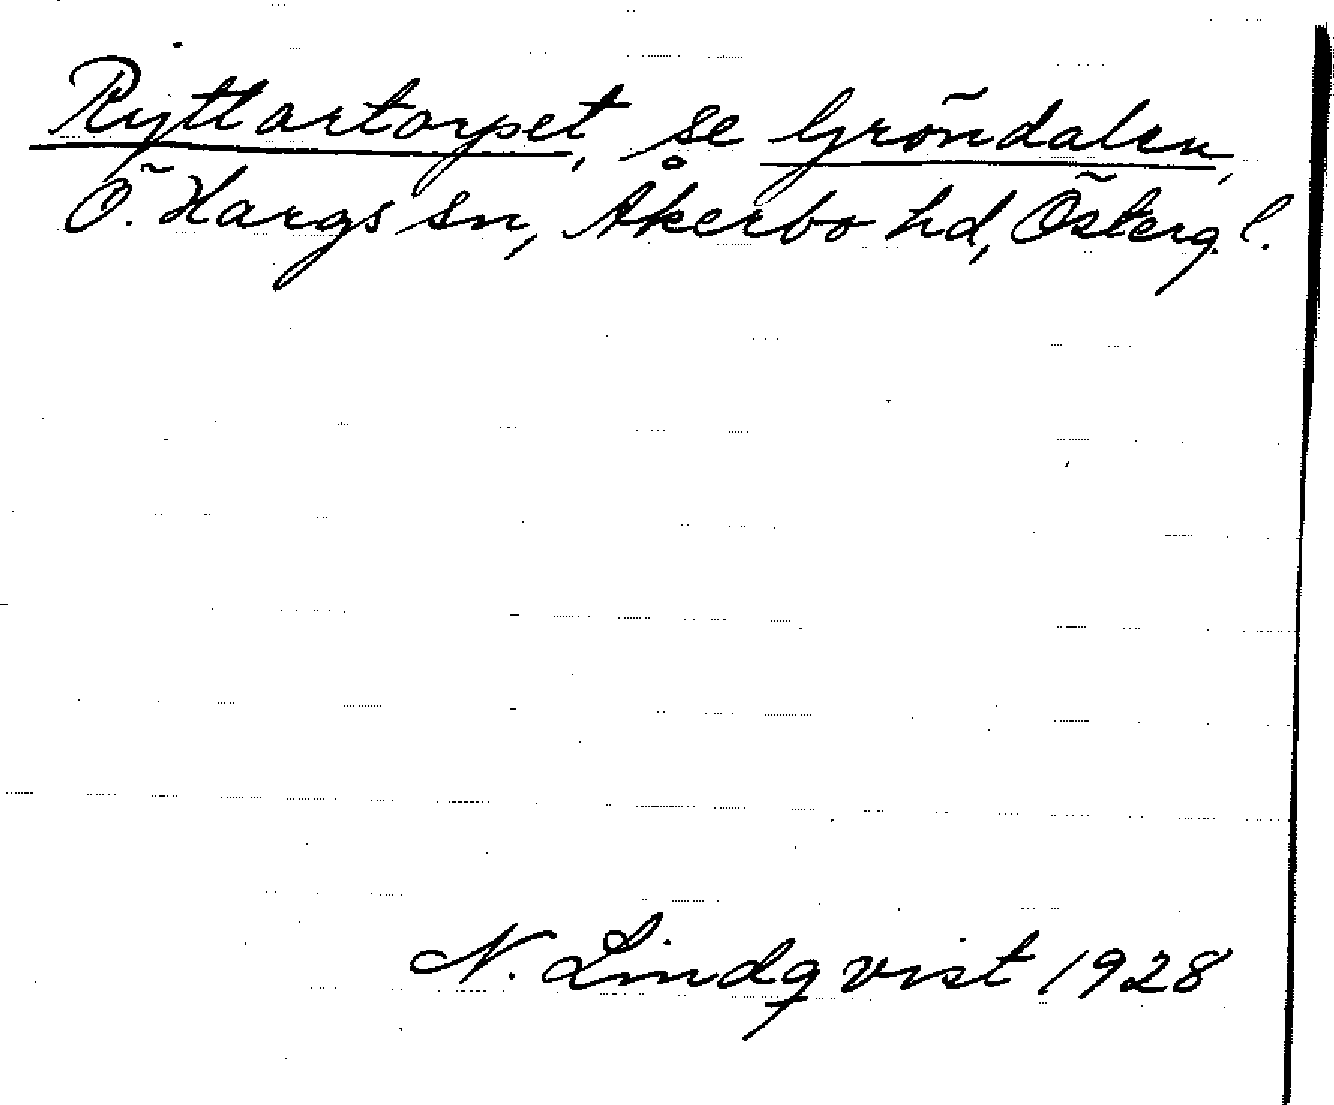 Ryttartorpet, se Gröndalen,
Ö. Hargs sn, Åkerbo hd, Österg. l.
N. Lindqvist 1928